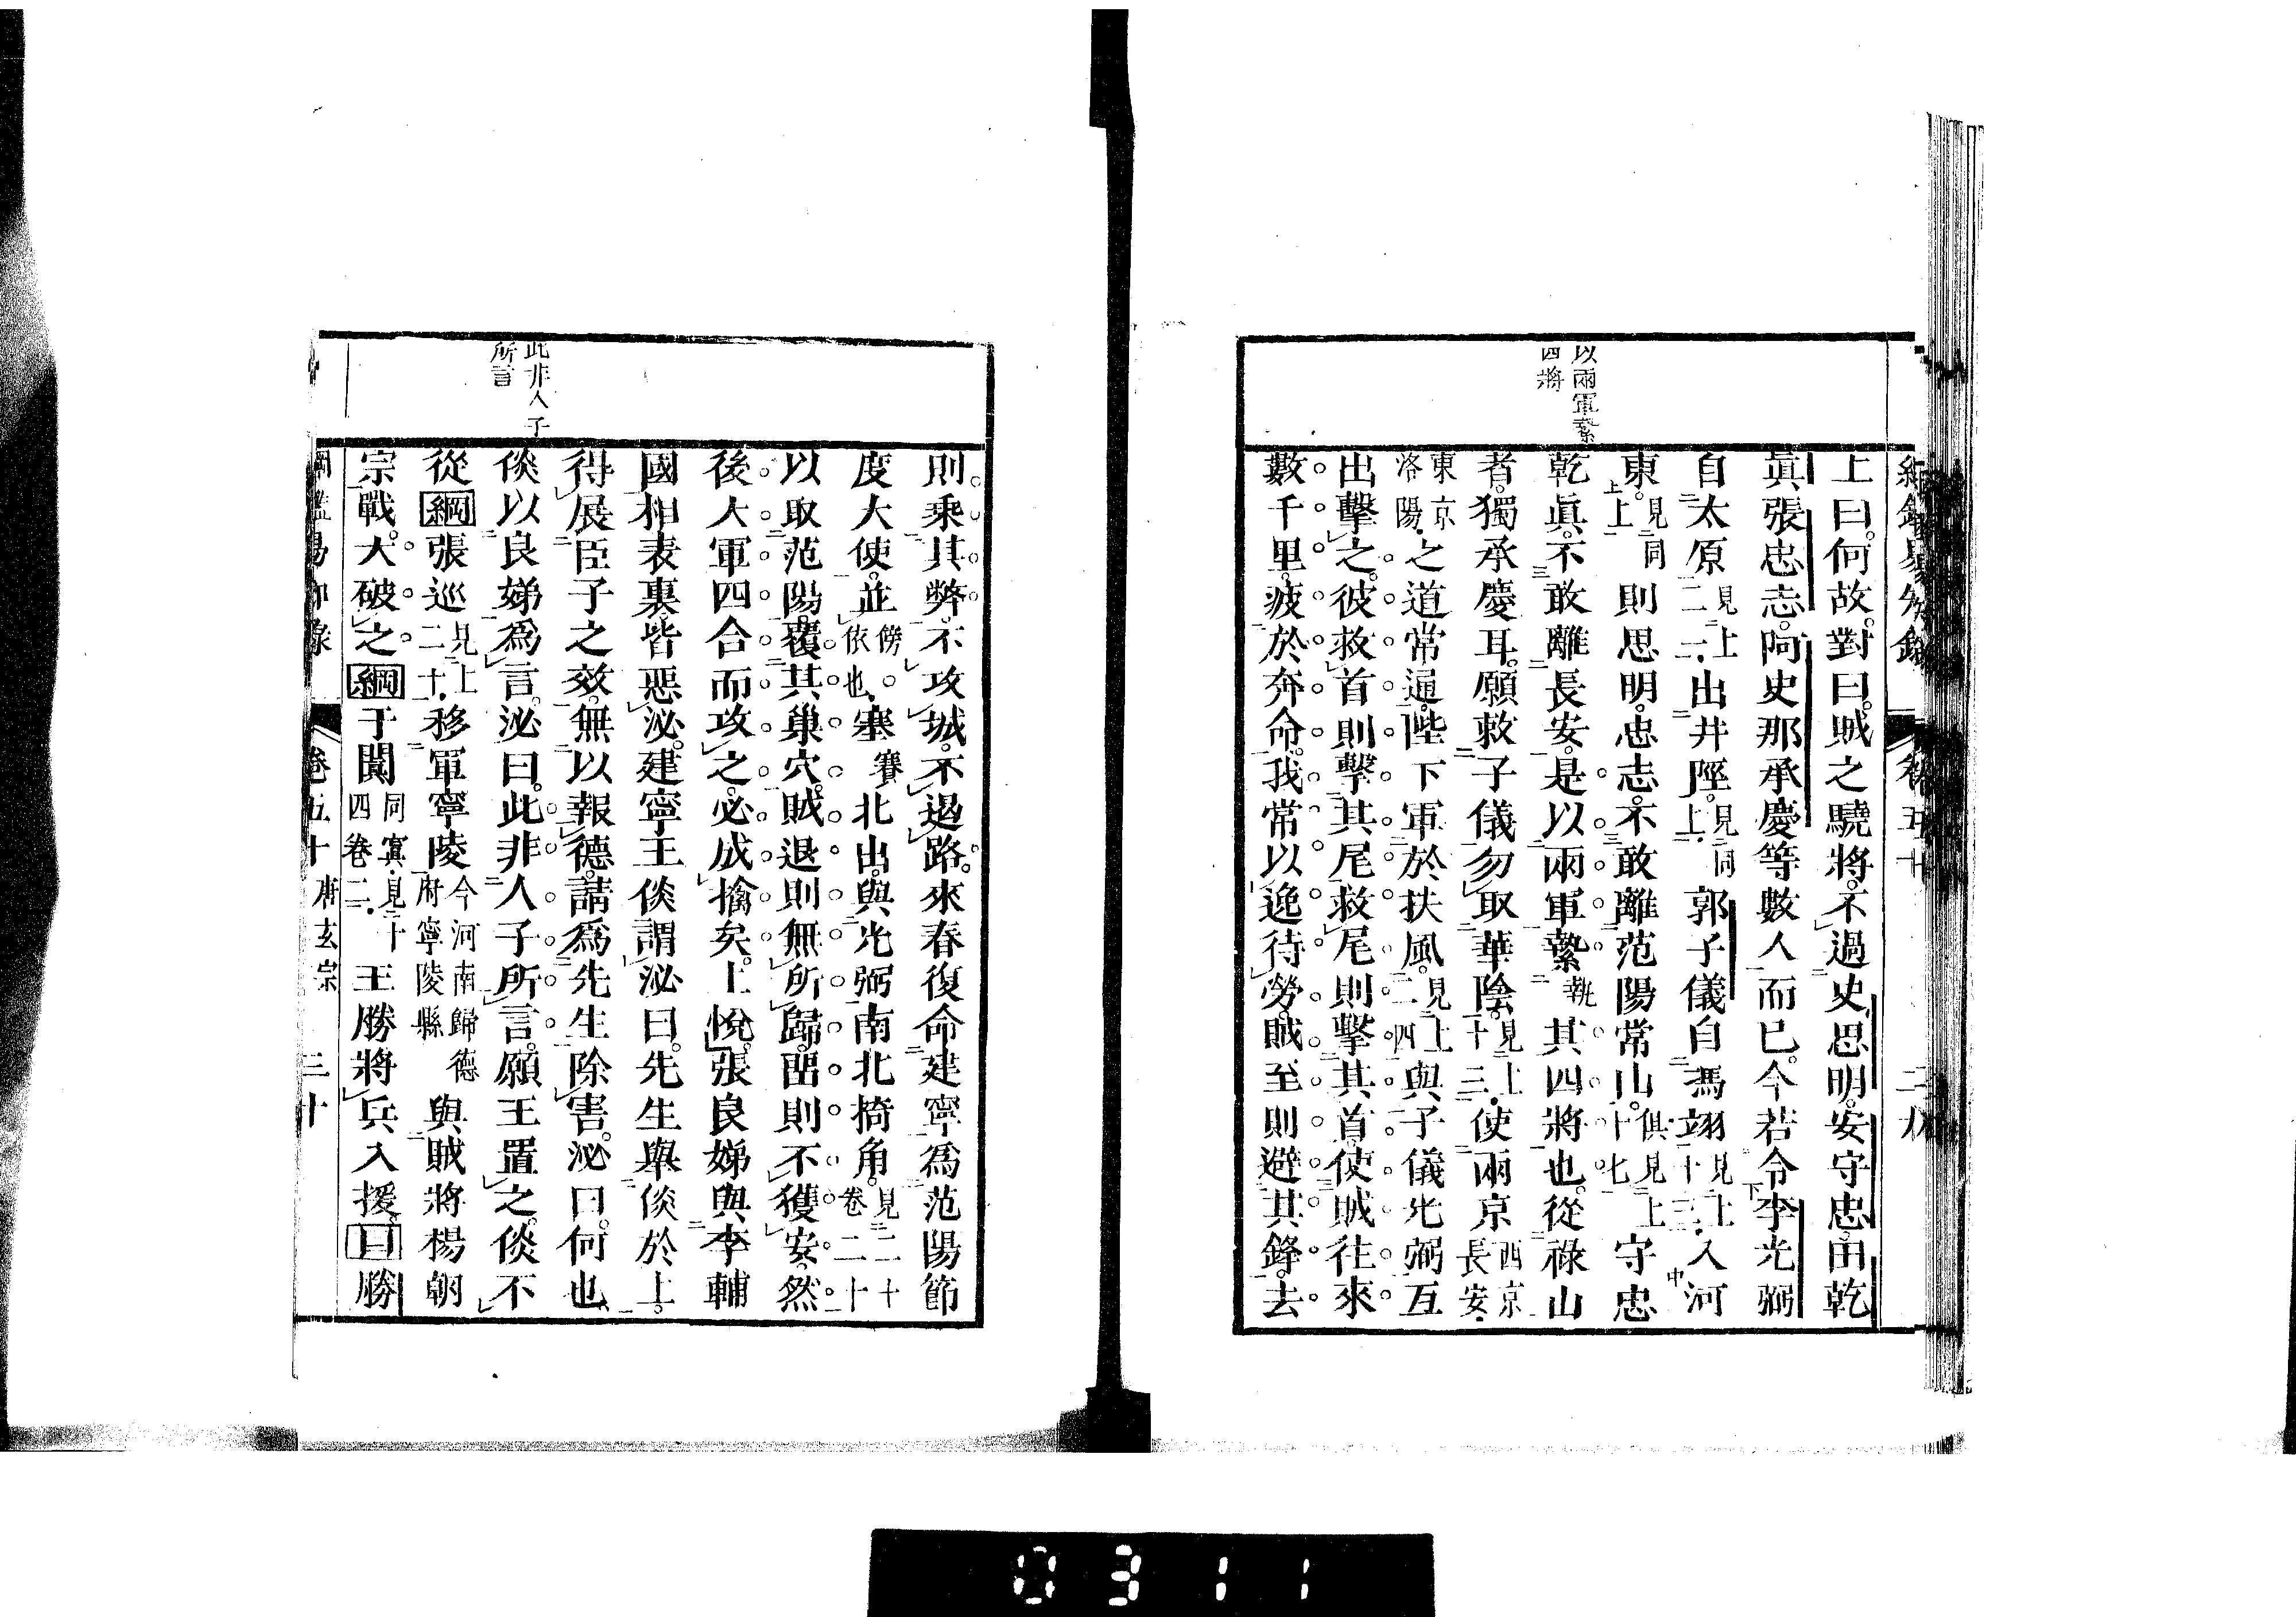 以兩軍縶
四將
上曰。何故。對曰。賊之驍將。不過史思明。安守忠。田乾
眞。張忠志。阿史那承慶等數人而已。今若令李光弼
自太原見上二二。出井陘。見同上。郭子儀自馮翊見上十三。入河
東。見同上則思明。忠志。不敢離范陽常山。俱見上十七守忠
乾眞。不敢離長安。是以兩軍縶執其四將也。從祿山
者。獨承慶耳。願敕子儀勿取華陰。見上十三。使兩京西京長安。
東京洛陽。之道常通。陛下軍於扶風。見上二四與子儀光弼互
出擊之。彼救首則擊其尾。救尾則擊其首。使賊往來
數千里。疲於奔命。我常以逸待勞。賊至則避其鋒。去
則乘其弊。不攻城。不遏路。來春復命建寧爲范陽節
度大使。並傍。依也。塞賽北出。與光弼南北掎角。見二十卷二十
以取范陽。覆其巢穴。賊退則無所歸。畱則不獲安。然
後大軍四合而攻之。必成擒矣。上悅。張良娣與李輔
國相表裏。皆惡泌。建寧王倓謂泌曰。先生舉倓於上。
得展臣子之效。無以報德。請爲先生除害。泌曰。何也。
倓以良娣爲言。泌曰。此非人子所言。願王置之。倓不
從綱張巡見上二十。移軍寧陵今河南歸德府寧陵縣與賊將楊朝
宗戰。大破之綱于闐同窴。見十四卷二二。王勝將兵入援。目勝
此非人子
所言
卷五十 唐玄宗 三十